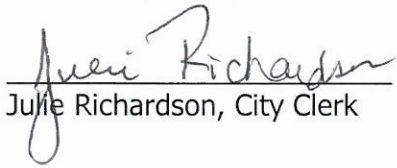 Julie Richardson
Julie Richardson, City Clerk